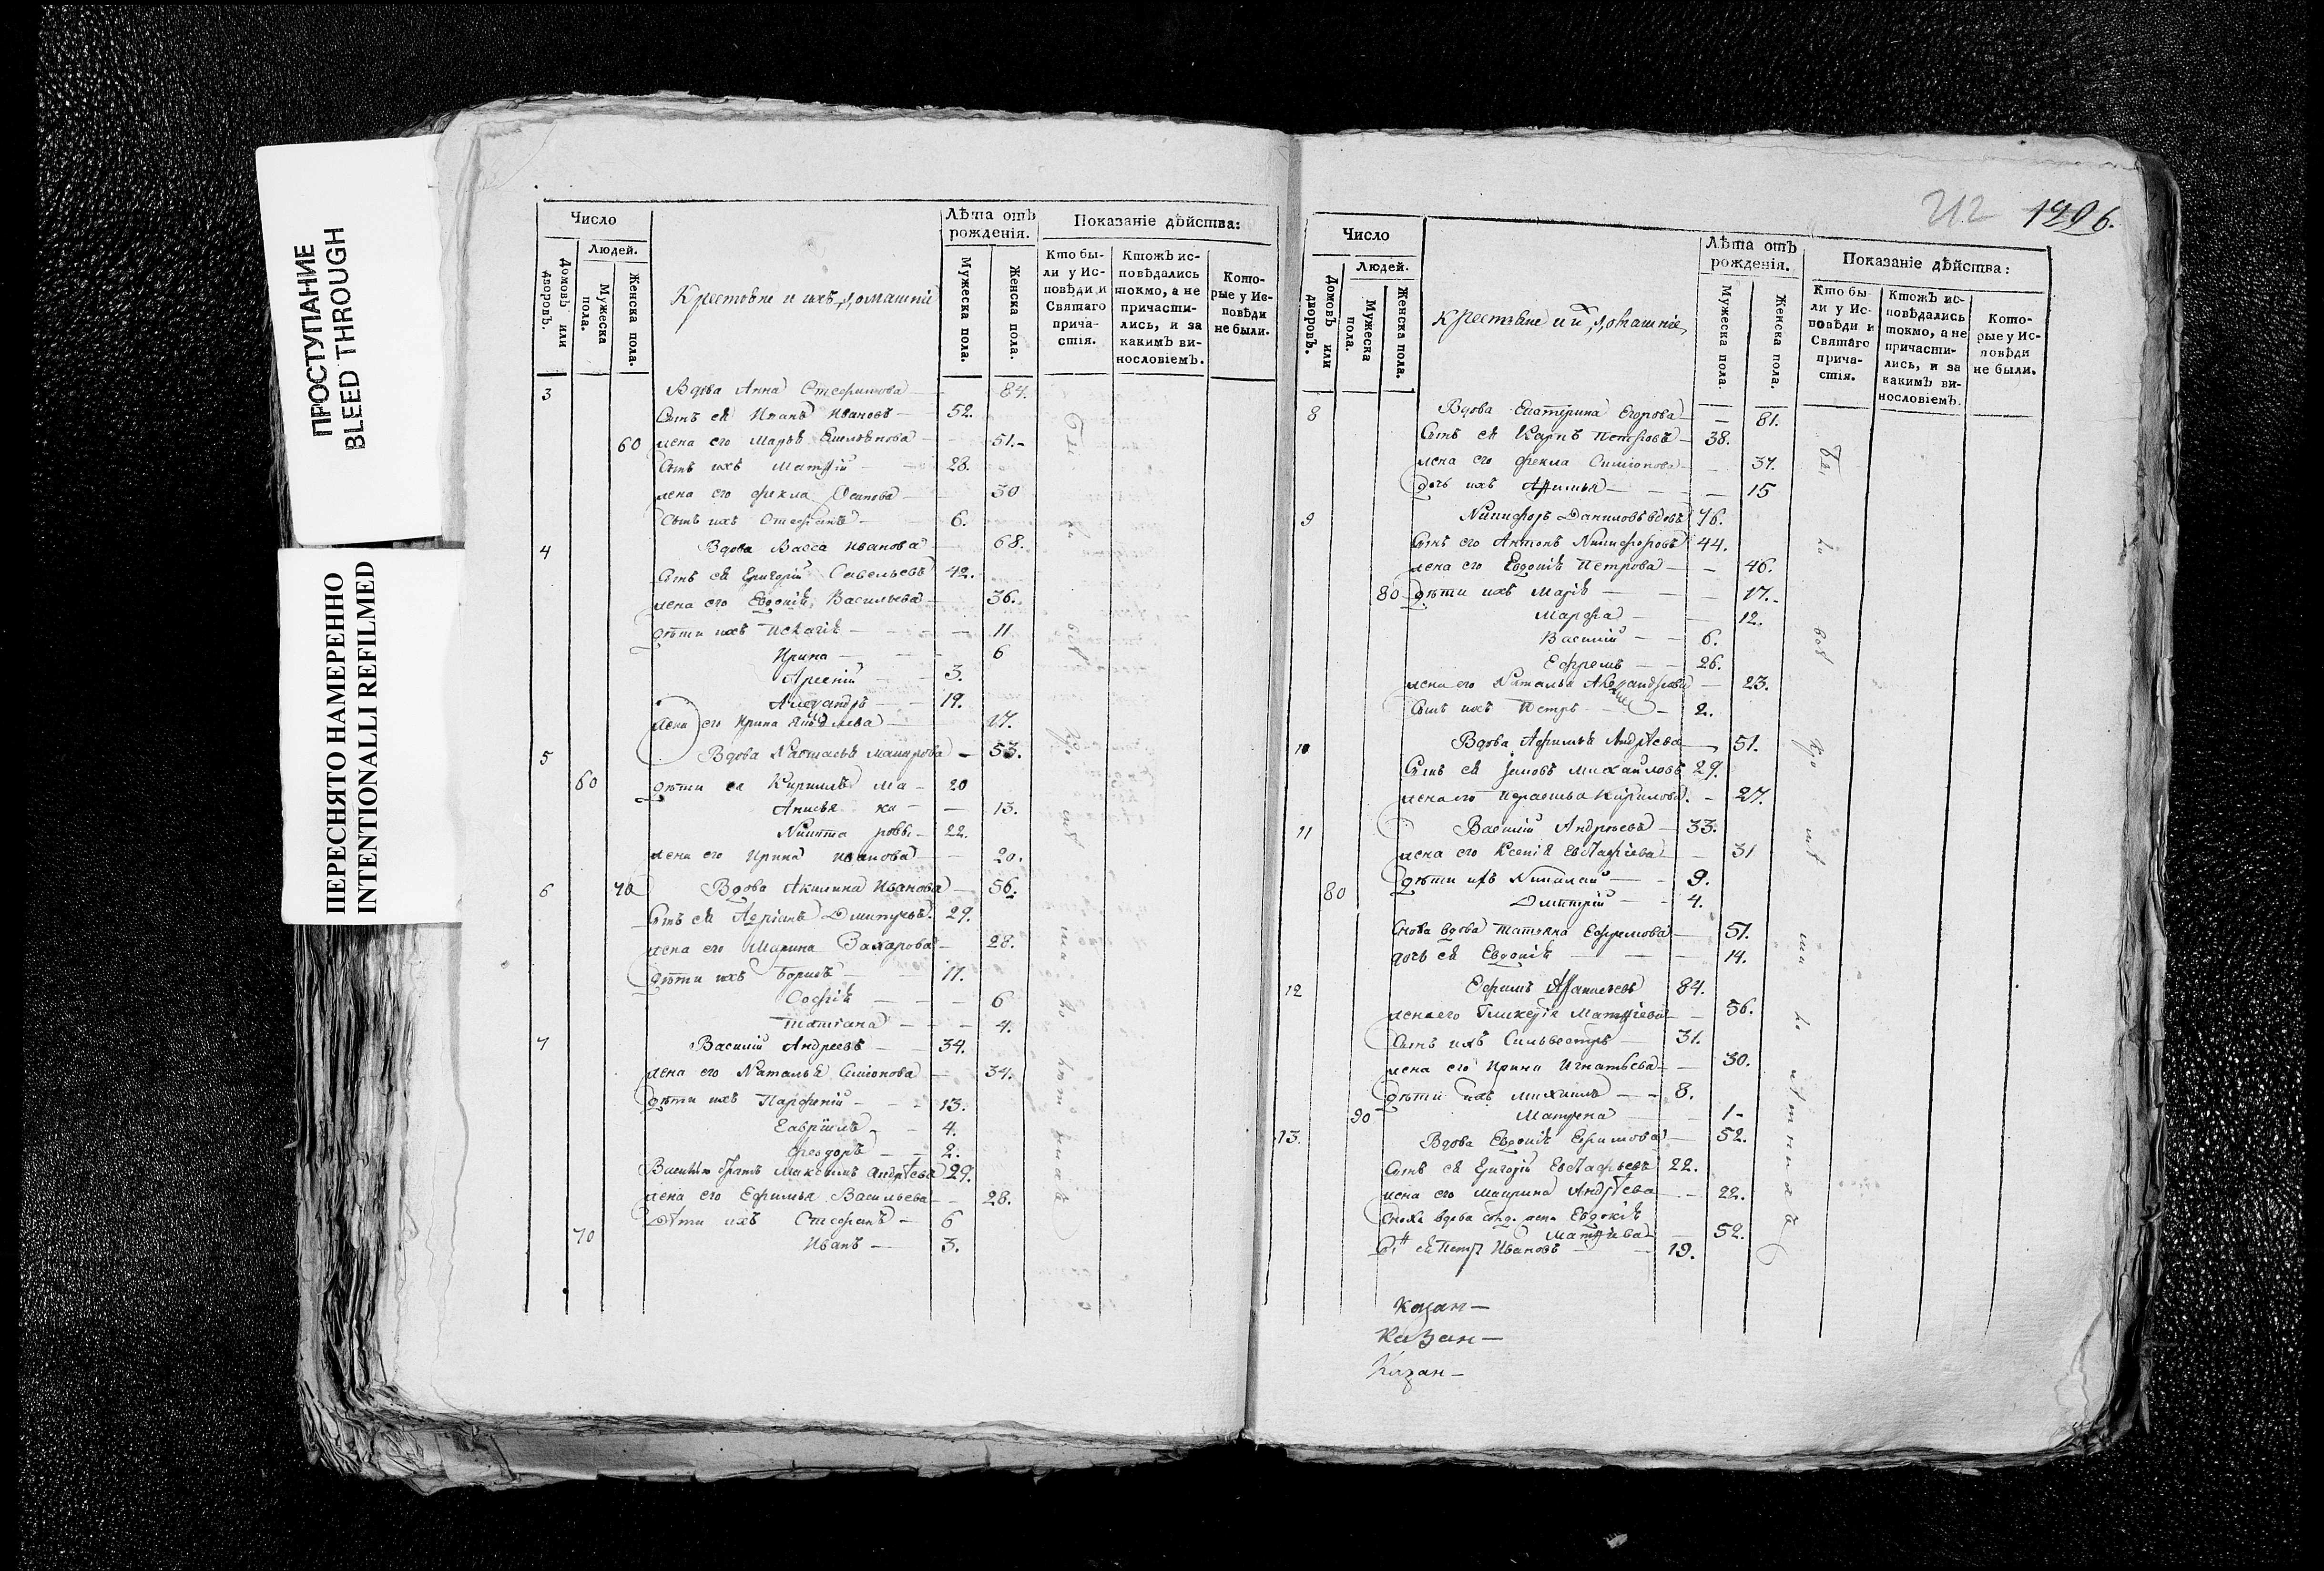 ПРОСТУПАНИЕ
BLEED THROUGH
ПЕРЕСНЯТО НАМЕРЕННО
INTENTIONALLI REFILMED
Число
Людей.
Домовъ или дворовъ.
Мужеска пола.
Женска пола.
Крестьяне и ихъ домашніе
Лѣта отъ рожденія.
Мужеска пола.
Женска пола.
Показаніе дѣйства:
Кто были у Исповѣди и Святаго причастія.
Ктожъ исповѣдались токмо, а не причастились, и за какимъ винословіемъ.
Которые у Исповѣди не были.
3 Вдова Анна Стефанова — 84.
Сынъ ея Иванъ Ивановъ — 52.
60 жена его Марья — 51.
Сынъ ихъ Матѳій — 28.
жена его Фекла Осипова — 30
Сынъ ихъ Стефанъ — 6.
4 Вдова Васса Иванова 68.
Сынъ ея Григорій Савельевъ 42.
жена его Евдокія Васильева — 36.
дѣти ихъ — 11
Ирина — 6
Арсеній — 3.
Александръ — 19.
жена его Ирина — 17.
5 Вдова Настасья — 53.
60 дѣти ея Кирилъ Ма — 20
Анисья ка — 13.
Никита ровы — 22.
жена его Ирина Иванова — 20.
6 70 Вдова Акилина Иванова — 56.
Сынъ ея Адріанъ Дмитріевъ. 29.
жена его Марина Захарова — 28.
дѣти ихъ Борисъ — 11.
Софія — 6
Татіана — 4.
7 Василій Андреевъ — 34.
жена его Наталья Симіонова — 34.
дѣти ихъ Парфеній — 13.
Гавріилъ — 4.
Феодоръ — 2.
братъ Максимъ Андрѣевъ 29.
жена его Ефимья Васильева — 28.
Дѣти ихъ Стефанъ — 6
70 Иванъ — 3.
212 1296.
Число
Людей.
Домовъ или дворовъ.
Мужеска пола.
Женска пола.
Крестьяне и домашніе
Лѣта отъ рожденія.
Мужеска пола.
Женска пола.
Показаніе дѣйства:
Кто были у Исповѣди и Святаго причастія.
Ктожъ исповѣдались токмо, а не причастились, и за какимъ винословіемъ.
Которые у Исповѣди не были.
8 Вдова Екатерина Егорова — 81.
Сынъ ея Карпъ Петровъ — 38.
жена его Фекла Симіонова — 37.
дочь ихъ — 15
9 Никифоръ Даниловъ вдовъ 76.
Сынъ его Антонъ Никифоровъ 44.
жена его Евдокія Петрова — 46.
80 дѣти ихъ Марія — 17.
Марфа — 12.
Василій — 6.
Ефремъ — 26.
жена его Наталья Александрова — 23.
Сынъ ихъ Петръ — 2.
10 Вдова Афимья Андрѣева — 51.
Сынъ ея Михайловъ 29.
жена его Кирилова. — 27.
11 Василій Андреевъ — 33.
жена его Ксенія Евстафіева — 31
дѣти ихъ Николай — 9.
80 Дмитрій — 4.
Сноха вдова Татіяна Ефремова — 51.
дочь ея Евдокія — 14.
12 Ефимъ Афанасьевъ 84.
жена его Гликерія Матѳіева — 56.
Сынъ ихъ Сильвестръ 31.
жена его Ирина Игнатьева — 30.
дѣти ихъ Михаилъ — 8.
90 Матрена — 1
13. Вдова Евдокія Ефимова — 52.
Сынъ ея Григорій Евстафьевъ 22.
жена его Андрѣева — 22.
Сноха вдова Евдокія
Матѳіева — 52.
ея Петръ Ивановъ — 19.
Казан—
Казан—
Казан—